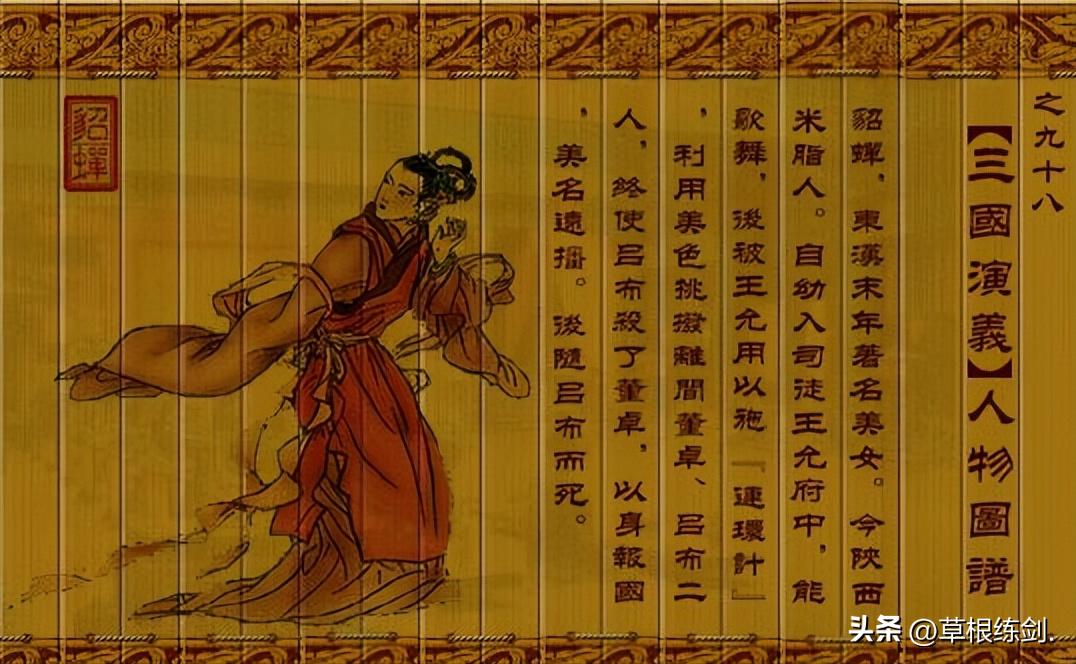 之九十八
【三國演義】人物圖譜
貂蟬，東漢末年著名美女。今陝西
米脂人。自幼入司徒王允府中，能
歌舞，後被王允用以施『連環計』
，利用美色挑撥離間董卓、呂布二
人，終使呂布殺了董卓，以身報國
，美名遠播。後隨呂布而死。
貂蟬
头条 @草根练剑.